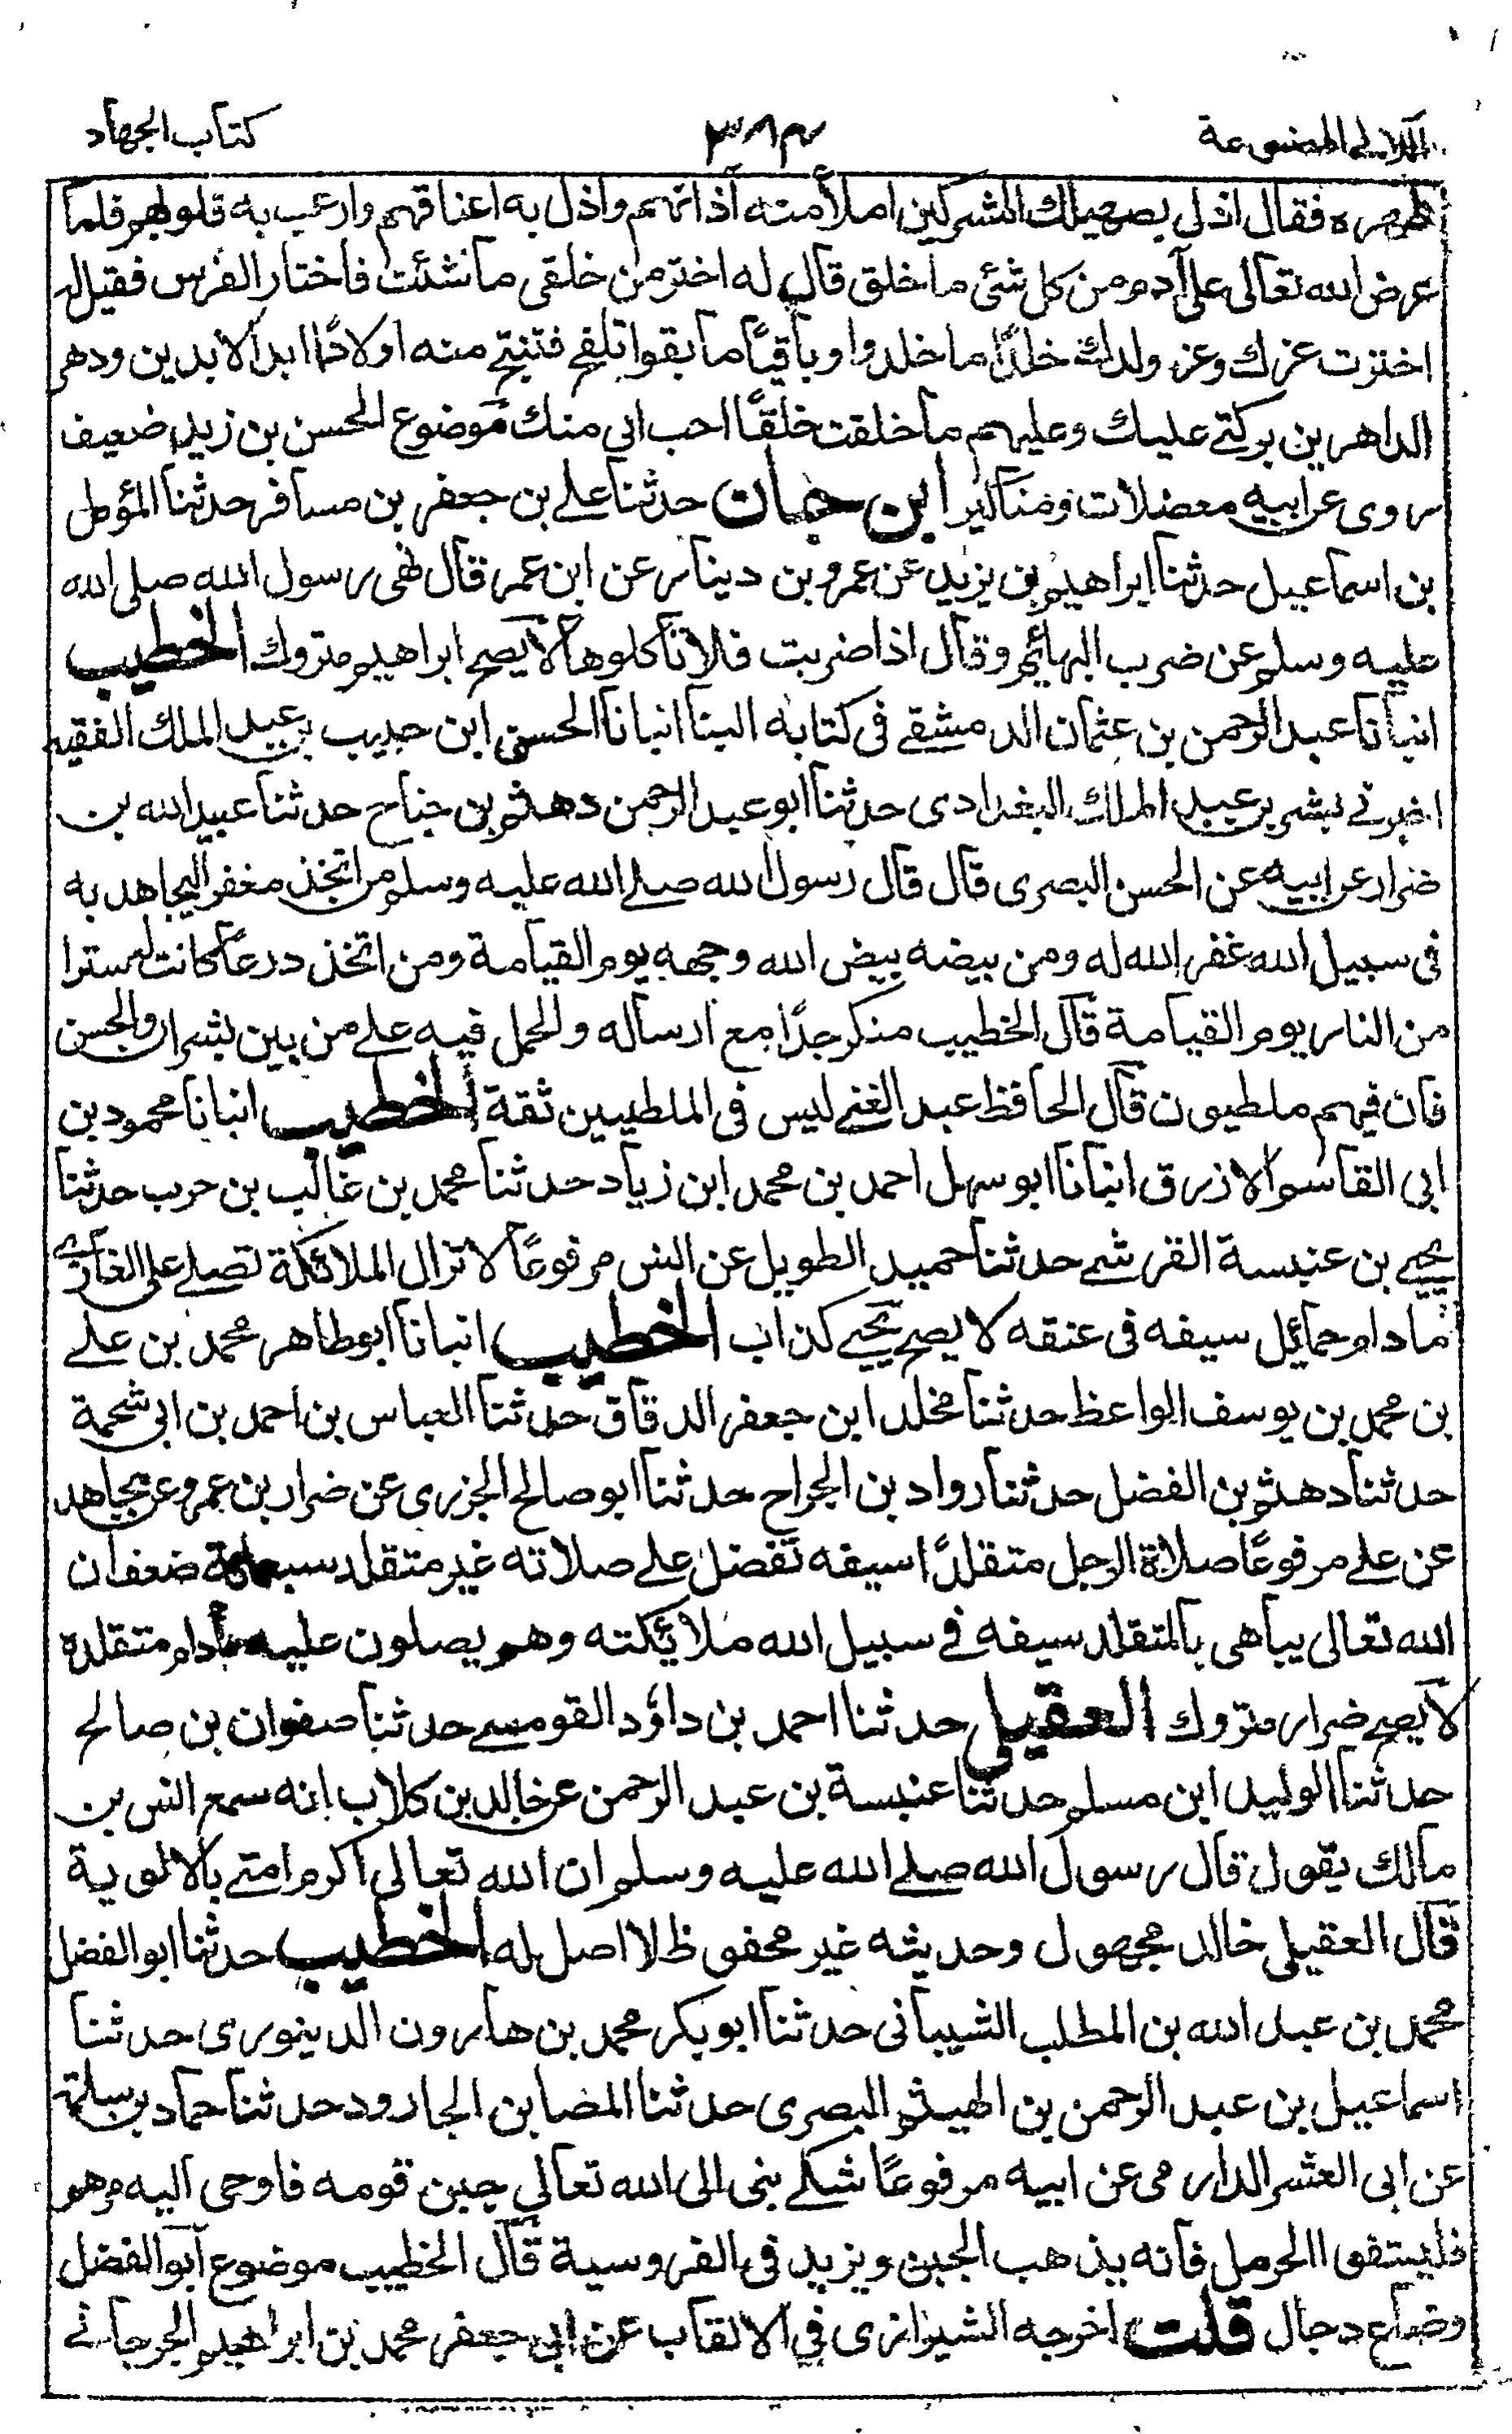 اللآلي المصنوعة
٣٨٣
كتاب الجهاد
ظهره فقال اذلى بصهيلك المشركين املأ منه آذانهم واذل به اعناقهم وارعب به قلوبهم فلما
عرض الله تعالى على آدم من كل شئ ما خلق قال له اختر من خلقى ما شئت فاختار الفرس فقيل له
اخترت عزك وعز ولدك خلدًا ما خلدوا وباقيًا ما بقوا تلقح فتنتج منه اولادًا ابد الابدين ودهر
الداهرين بركتے عليك وعليهم ما خلقت خلقًا احب الى منك موضوع الحسن بن زيد ضعيف
روى عن ابيه معضلات ومناكير ابن حبان حدثنا علے بن جعفر بن مسافر حدثنا المؤمل
بن اسماعيل حدثنا ابراهيم بن يزيد عن عمرو بن دينار عن ابن عمر قال نهى رسول الله صلى الله
عليه وسلم عن ضرب البهائم وقال اذا ضربت فلا تأكلوها لا يصح ابراهيم متروك الخطيب
انبأنا عبد الرحمن بن عثمان الدمشقے فى كتابه الينا انبانا الحسن ابن حبيب بن عبد الملك الفقيه
اخبرنے بشر بن عبد الملك البغدادى حدثنا ابو عبد الرحمن دهثم بن جناح حدثنا عبيد الله بن
ضرار عن ابيه عن الحسن البصرى قال قال رسول الله صلے الله عليه وسلم من اتخذ مغفرا ليجاهد به
فى سبيل الله غفر الله له ومن بيضه بيض الله وجهه يوم القيامة ومن اتخذ درعا كانت له سترا
من النار يوم القيامة قال الخطيب منكر جدًا مع ارساله والحمل فيه علے من بين بشر والحسن
فان فيهم ملطيون قال الحافظ عبد الغنے ليس فى الملطيين ثقة الخطيب انبانا محمود بن
ابى القاسم الازرق انبانا ابو سهل احمد بن محمد ابن زياد حدثنا محمد بن غالب بن حرب حدثنا
يحيے بن عنبسة القرشے حدثنا حميد الطويل عن انس مرفوعًا لا تزال الملائكة تصلے على الغازے
ما دام حمائل سيفه فى عنقه لا يصح يحيے كذاب الخطيب انبانا ابو طاهر محمد بن علے
بن محمد بن يوسف الواعظ حدثنا مخلد ابن جعفر الدقاق حدثنا العباس بن احمد بن ابى شحمة
حدثنا دهثم بن الفضل حدثنا رواد بن الجراح حدثنا ابو صالح الجزرى عن ضرار بن عمرو عن مجاهد
عن علے مرفوعًا صلاة الرجل متقلدًا سيفه تفضل علے صلاته غير متقلد سبعمائة ضعف ان
الله تعالى يباهى بالمتقلد سيفه فے سبيل الله ملائكته وهم يصلون عليه ما دام متقلده
لا يصح ضرار متروك العقيلى حدثنا احمد بن داؤد القومسے حدثنا صفوان بن صالح
حدثنا الوليد ابن مسلم حدثنا عنبسة بن عبد الرحمن عن خالد بن كلاب انه سمع انس بن
مالك يقول قال رسول الله صلے الله عليه وسلم ان الله تعالى اكرم امتے بالالوية
قال العقيلى خالد مجهول وحديثه غير محفوظ لا اصل له الخطيب حدثنا ابو الفضل
محمد بن عبد الله بن المطلب الشيبانى حدثنا ابو بكر محمد بن هارون الدينورى حدثنا
اسماعيل بن عبد الرحمن بن الهيثم البصرى حدثنا المضا بن الجارود حدثنا حماد بن سلمة
عن ابى العشر الدارمى عن ابيه مرفوعًا شكے نبى الى الله تعالى جبن قومه فاوحى اليه مرهم
فليستفوا الحرمل فانه يذهب الجبن ويزيد فى الفروسية قال الخطيب موضوع ابو الفضل
وضاع دجال قلت اخرجه الشيرازى فى الالقاب عن ابى جعفر محمد بن ابراهيم الجرجانے